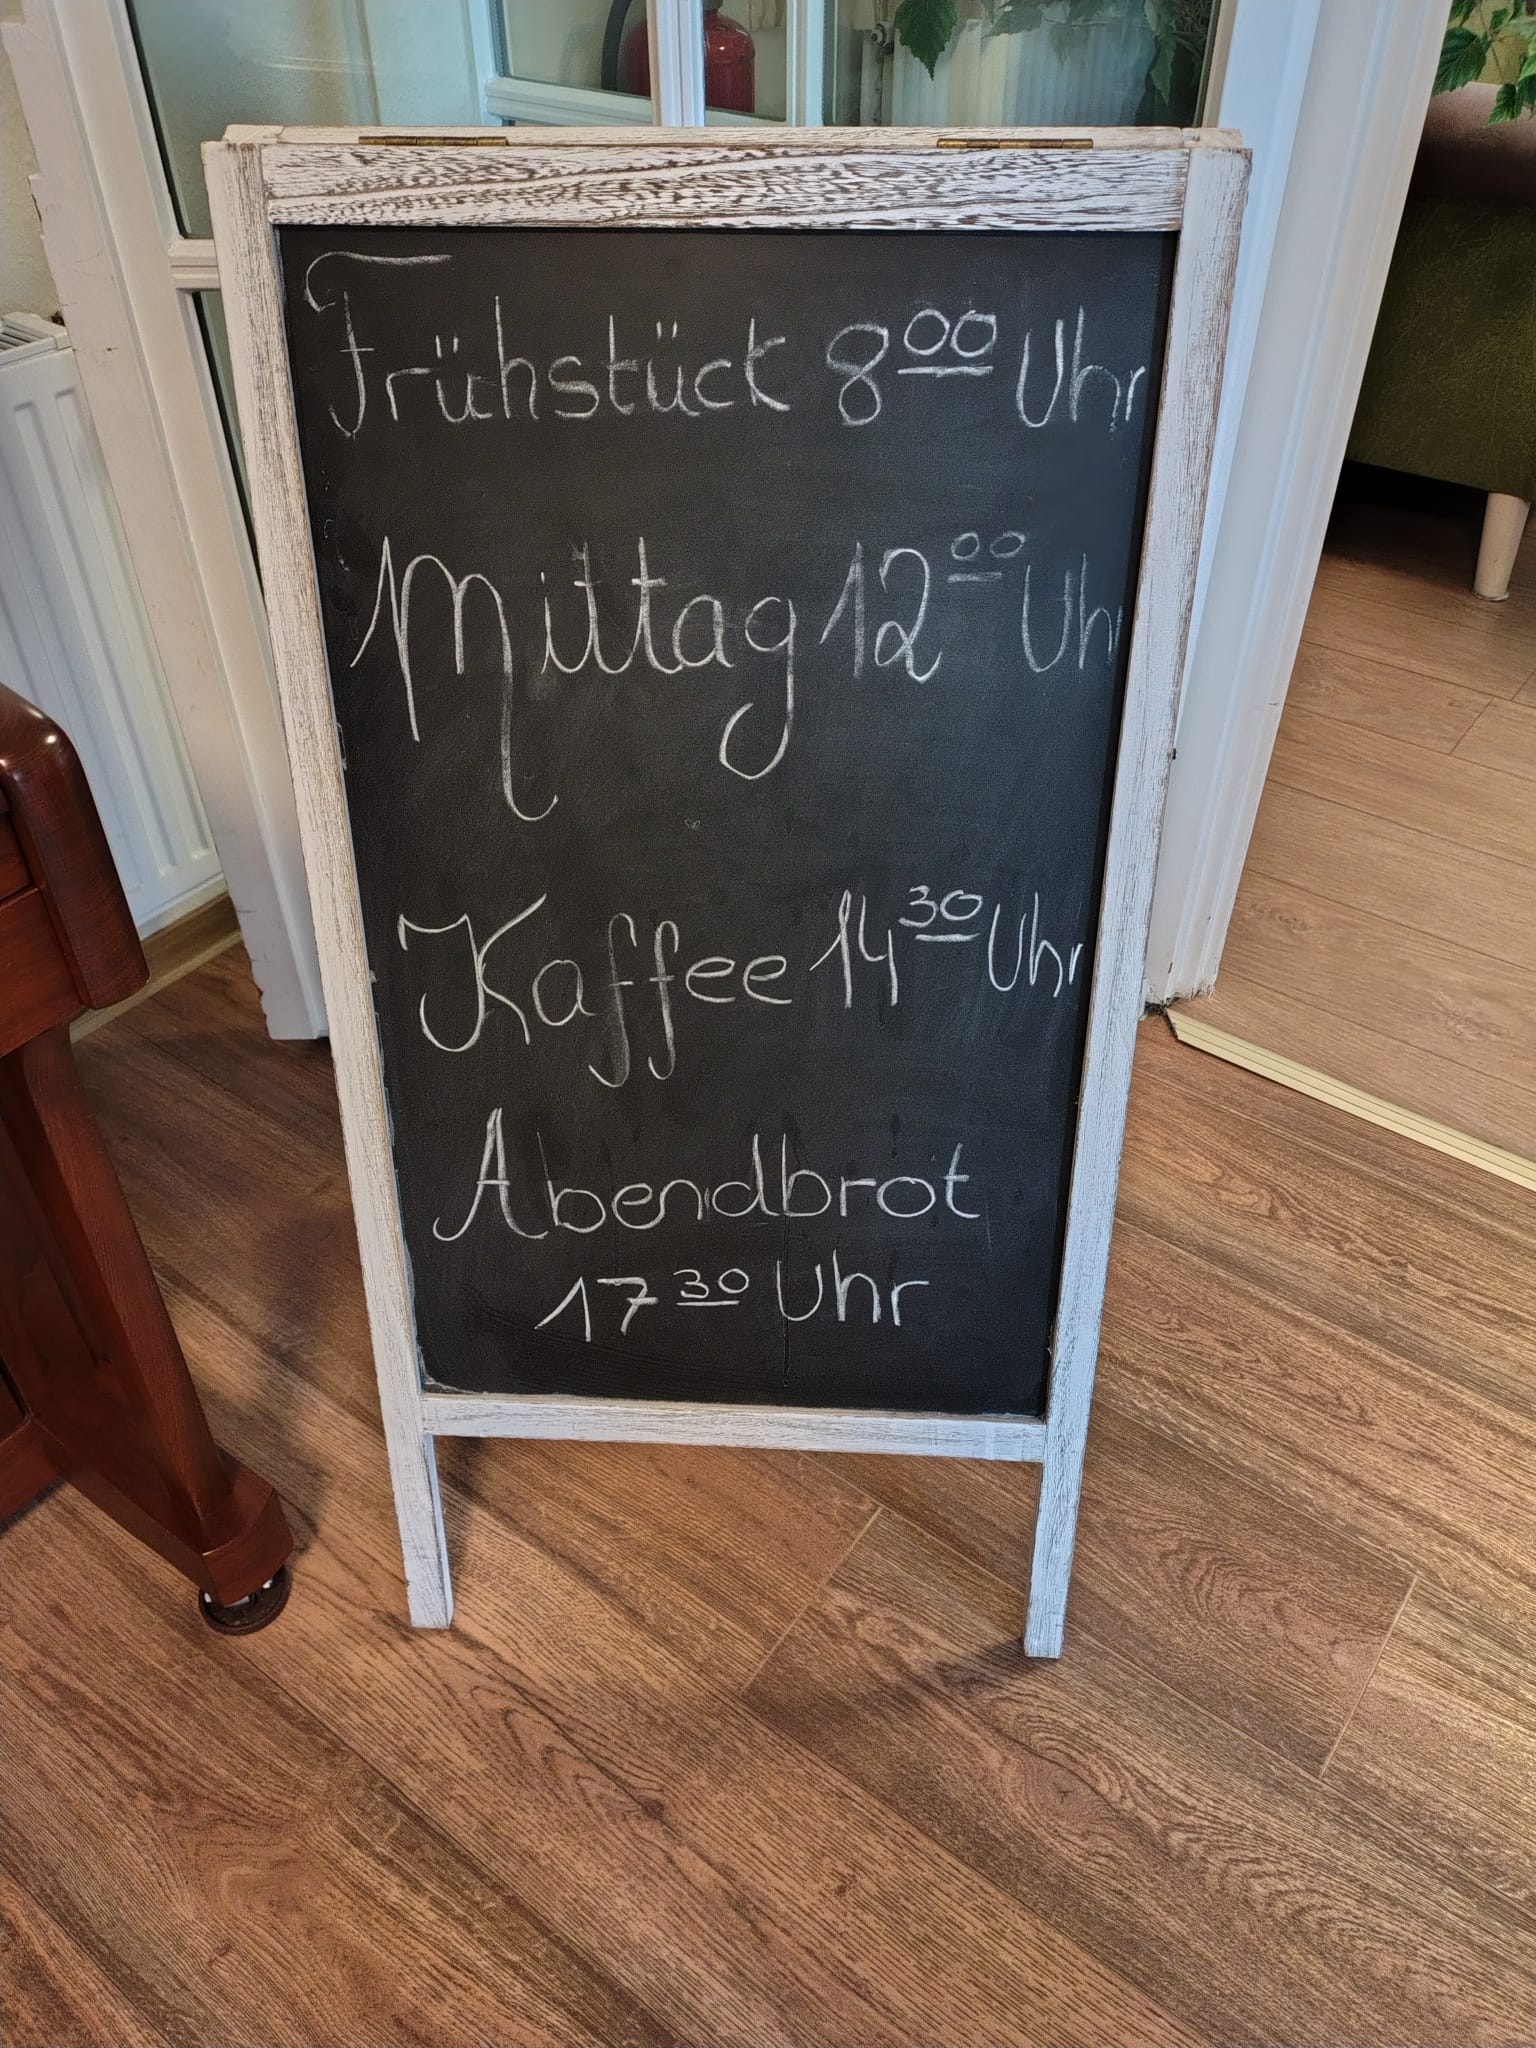 Frühstück 8⁰⁰ Uhr
Mittag 12⁰⁰ Uhr
Kaffee 14³⁰ Uhr
Abendbrot
17³⁰ Uhr